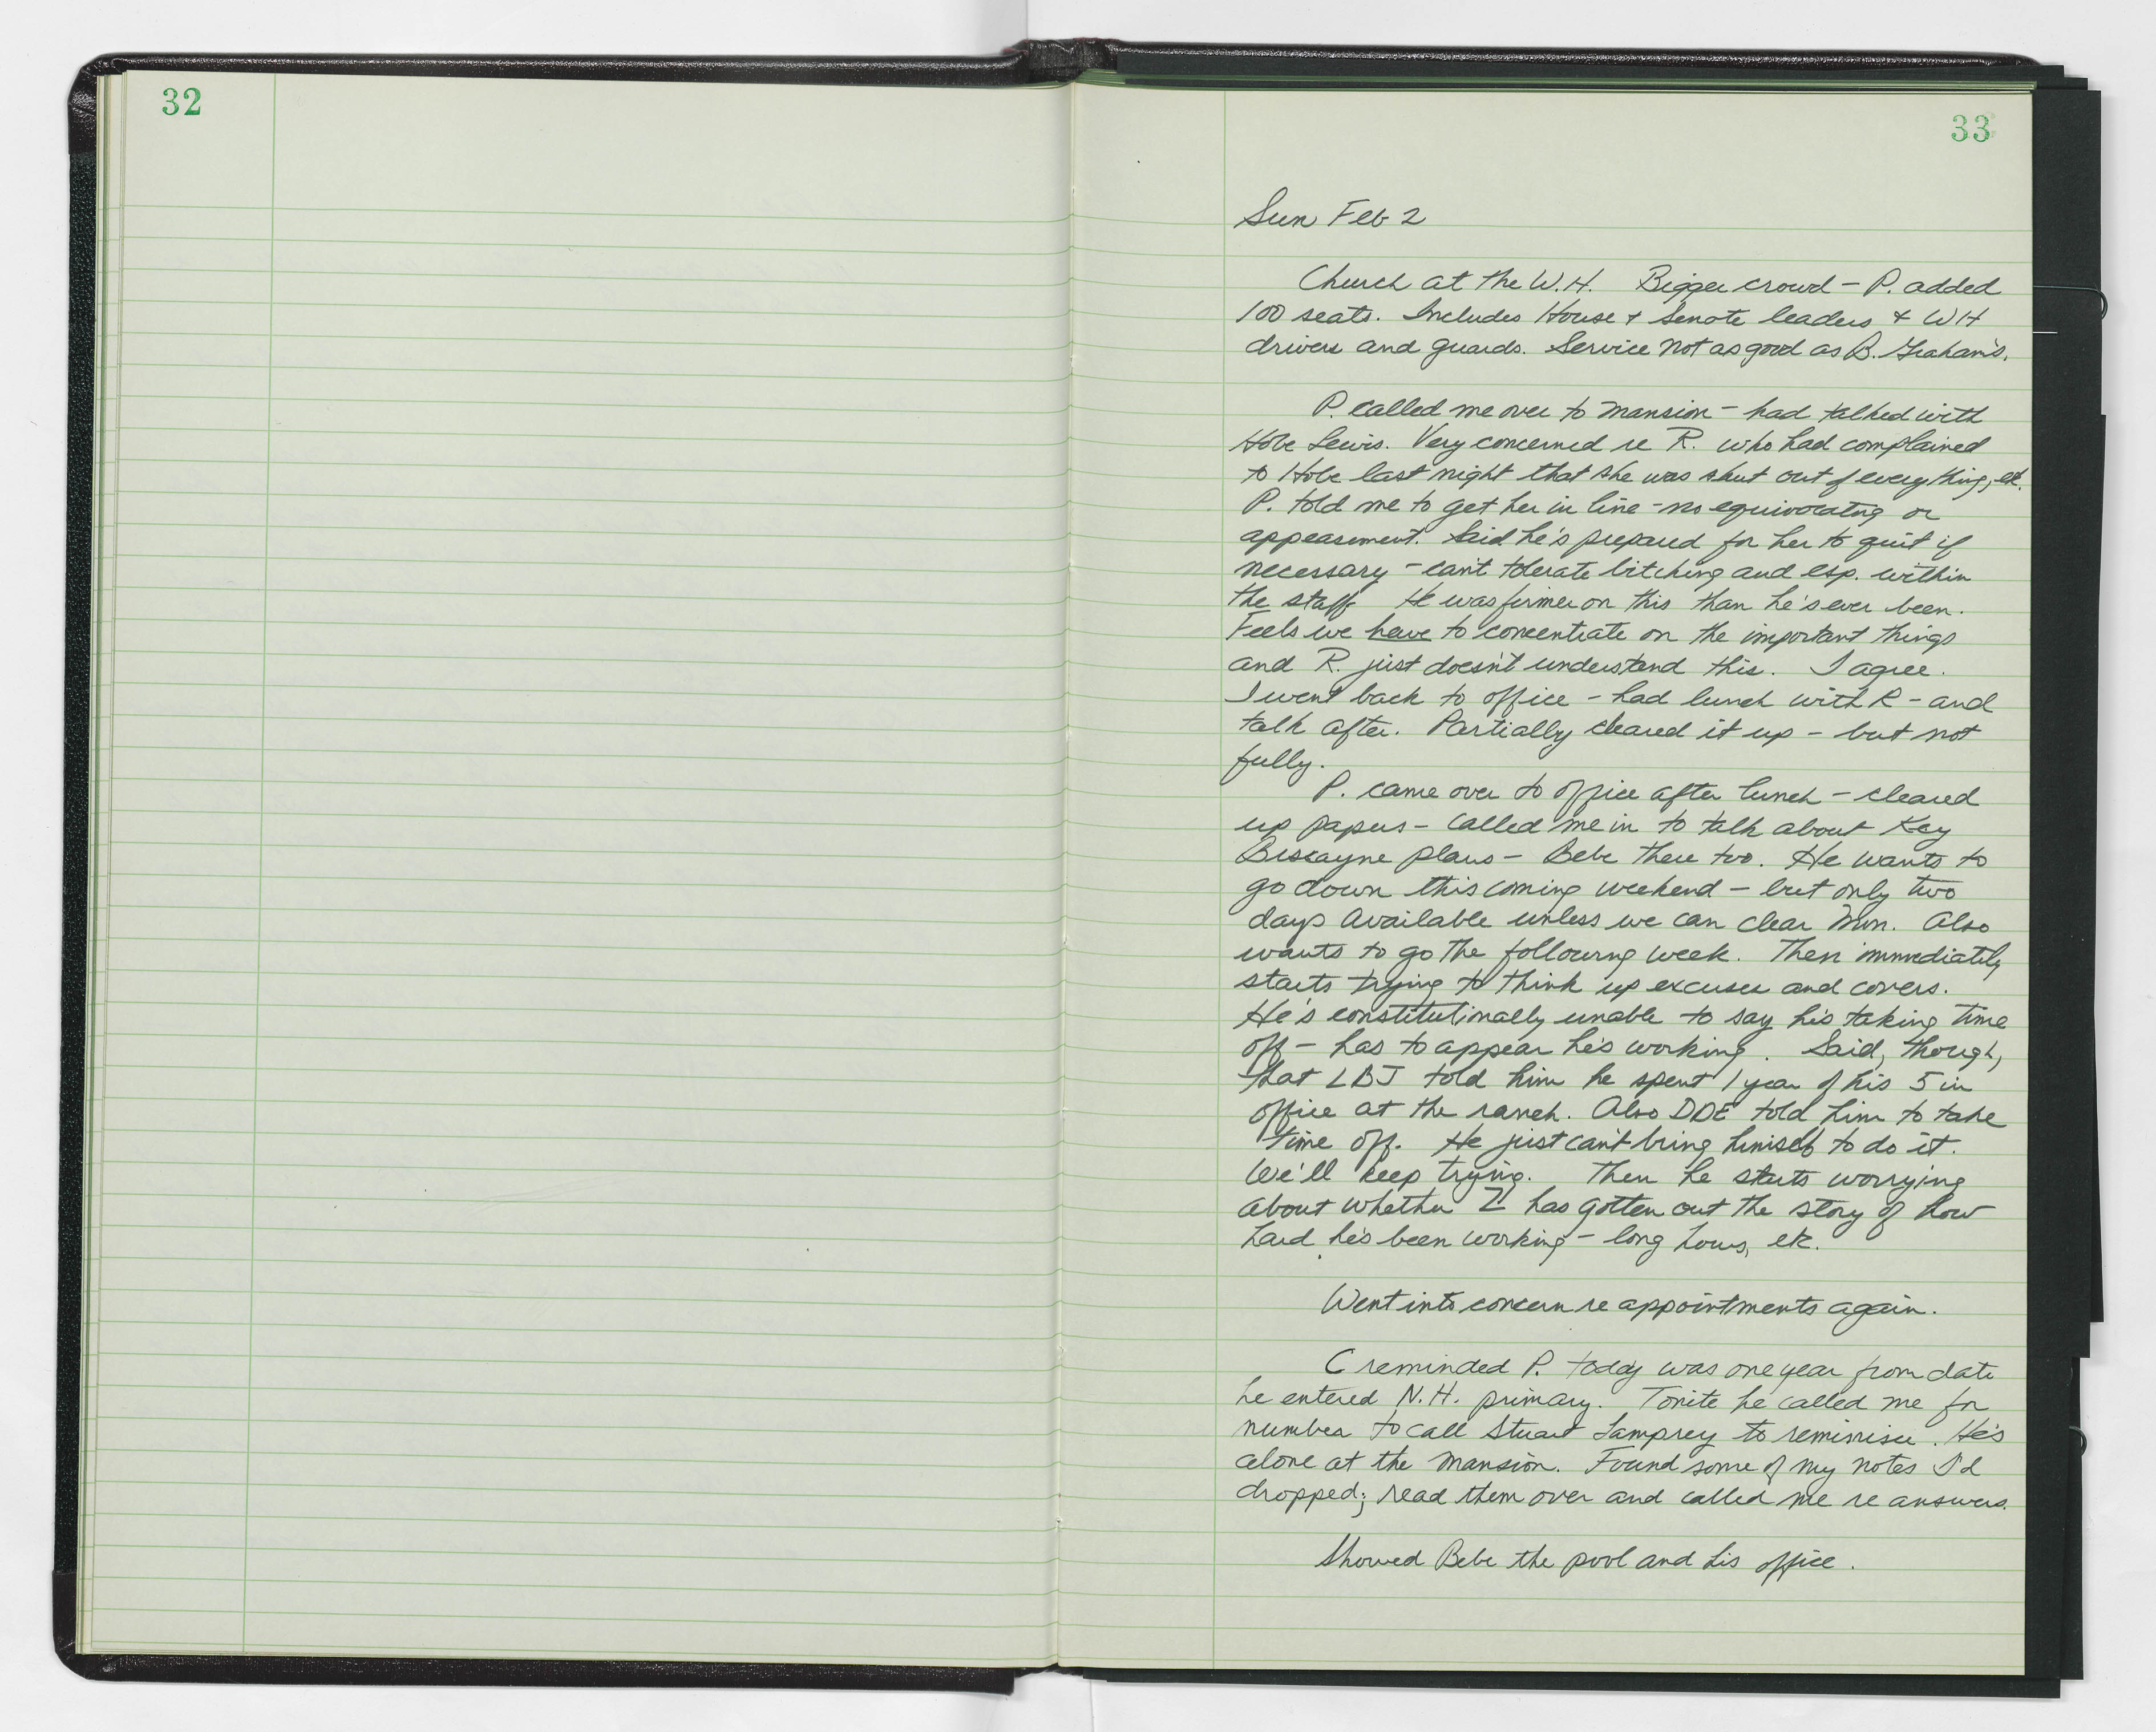 32
33
Sun Feb 2
Church at the W.H. Bigger crowd - P. added
100 seats. Includes House + Senate leaders + WH
drivers and guards. Service not as good as B. Graham's.
P. called me over to mansion - had talked with
Hobe Lewis. Very concerned re R. who had complained
to Hobe last night that she was shut out of everything, etc.
P. told me to get her in line - no equivocating or
appeasement. Said he's prepared for her to quit if
necessary - can't tolerate bitching and esp. within
the staff. He was firmer on this than he's ever been.
Feels we have to concentrate on the important things
and R. just doesn't understand this. I agree.
I went back to office - had lunch with R - and
talk after. Partially cleared it up - but not
fully.
P. came over to office after lunch - cleared
up papers - called me in to talk about Key
Biscayne plans - Bebe there too. He wants to
go down this coming weekend - but only two
days available unless we can clear Mon. Also
wants to go the following week. Then immediately
starts trying to think up excuses and covers.
He's constitutionally unable to say he's taking time
off - has to appear he's working. Said, though,
that LBJ told him he spent 1 year of his 5 in
office at the ranch. Also DDE told him to take
time off. He just can't bring himself to do it.
We'll keep trying. Then he starts worrying
about whether Z has gotten out the story of how
hard he's been working - long hours, etc.
Went into concern re appointments again.
C reminded P. today was one year from date
he entered N.H. primary. Tonite he called me for
number to call Stuart Lamprey to reminisce. He's
alone at the mansion. Found some of my notes I'd
dropped; read them over and called me re answers.
Showed Bebe the pool and his office.